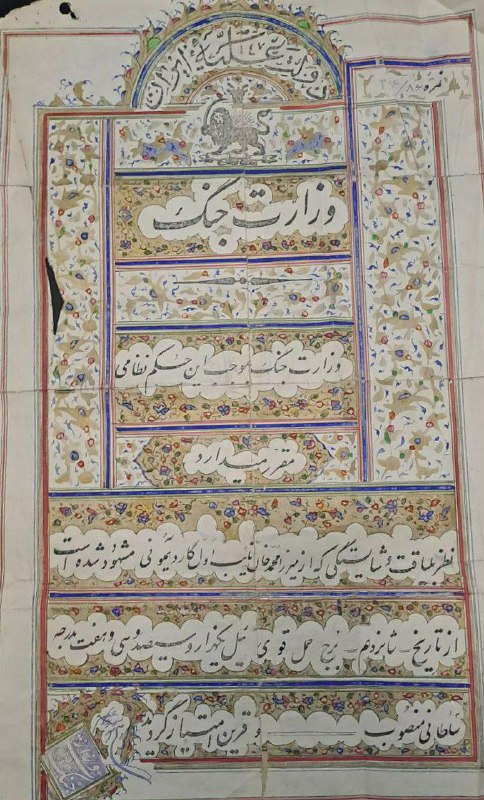 دولت علیّه ایران
نمره
وزارت جنگ
وزارت جنگ بموجب این حکم نظامی
مقرر میدارد
نظر بلیاقت و شایستگی که از میرزا محمود خان نایب اول گارد تیمونی مشهود شده است
از تاریخ شانزدهم برج حمل قوی ئیل یکهزار و سیصد و سی و هفت بدرجه
سلطانی منصوب و قرین امتیاز گردید